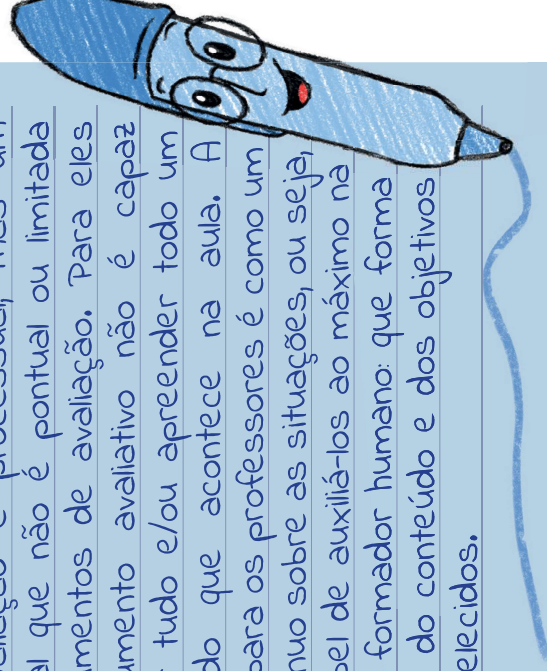 é pontual ou limitada
l que não
mentos de avaliação. Para eles
umento avaliativo não é capaz
tudo e/ou apreender todo um
do que acontece na aula. A
para os professores é como um
nuo sobre as situações, ou seja,
pel de auxiliá-los ao máximo na
formador humano: que forma
do conteúdo e dos objetivos
elecidos.